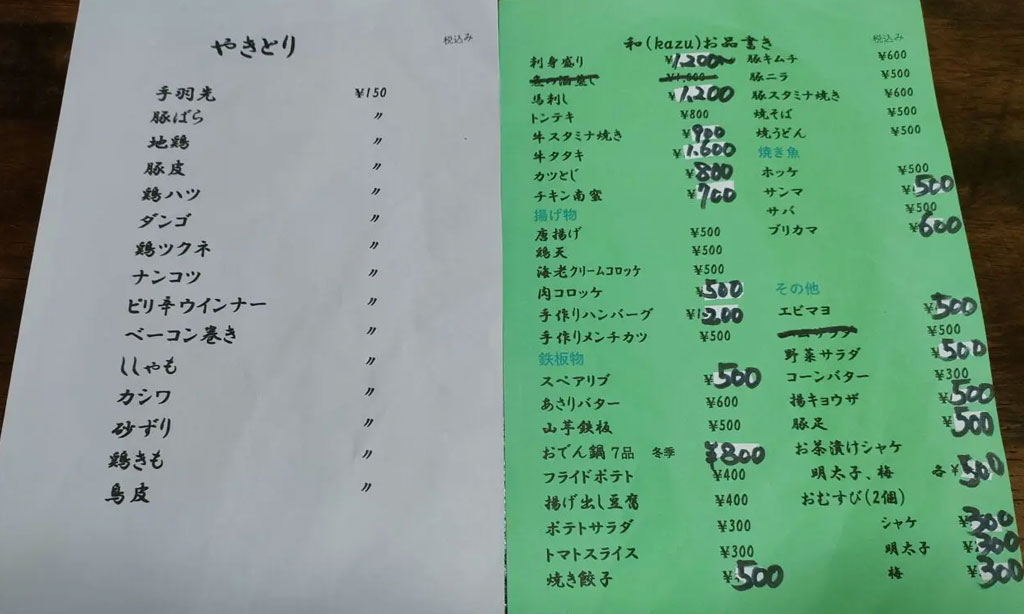 やきとり 税込み
手羽先 ¥150
豚ばら 〃
地鶏 〃
豚皮 〃
鶏ハツ 〃
ダンゴ 〃
鶏ツクネ 〃
ナンコツ 〃
ピリ辛ウインナー 〃
ベーコン巻き 〃
ししゃも 〃
カシワ 〃
砂ずり 〃
鶏きも 〃
鳥皮 〃
和(kazu)お品書き 税込み
刺身盛り ¥1,200〜
馬刺し ¥1,200
トンテキ ¥800
牛スタミナ焼き ¥900
牛タタキ ¥1,600
カツとじ ¥800
チキン南蛮 ¥700
揚げ物
唐揚げ ¥500
鶏天 ¥500
海老クリームコロッケ ¥500
肉コロッケ ¥500
手作りハンバーグ ¥1,200
手作りメンチカツ ¥500
鉄板物
スペアリブ ¥500
あさりバター ¥600
山芋鉄板 ¥500
おでん鍋 7品 冬季 ¥800
フライドポテト ¥400
揚げ出し豆腐 ¥400
ポテトサラダ ¥300
トマトスライス ¥300
焼き餃子 ¥500
豚キムチ ¥600
豚ニラ ¥500
豚スタミナ焼き ¥600
焼そば ¥500
焼うどん ¥500
焼き魚
ホッケ ¥500
サンマ ¥500
サバ ¥500
ブリカマ ¥600
その他
エビマヨ ¥500
¥500
野菜サラダ ¥500
コーンバター ¥300
揚キョウザ ¥500
豚足 ¥500
お茶漬けシャケ
明太子、梅 各¥500
おむすび(2個)
シャケ ¥300
明太子 ¥300
梅 ¥300